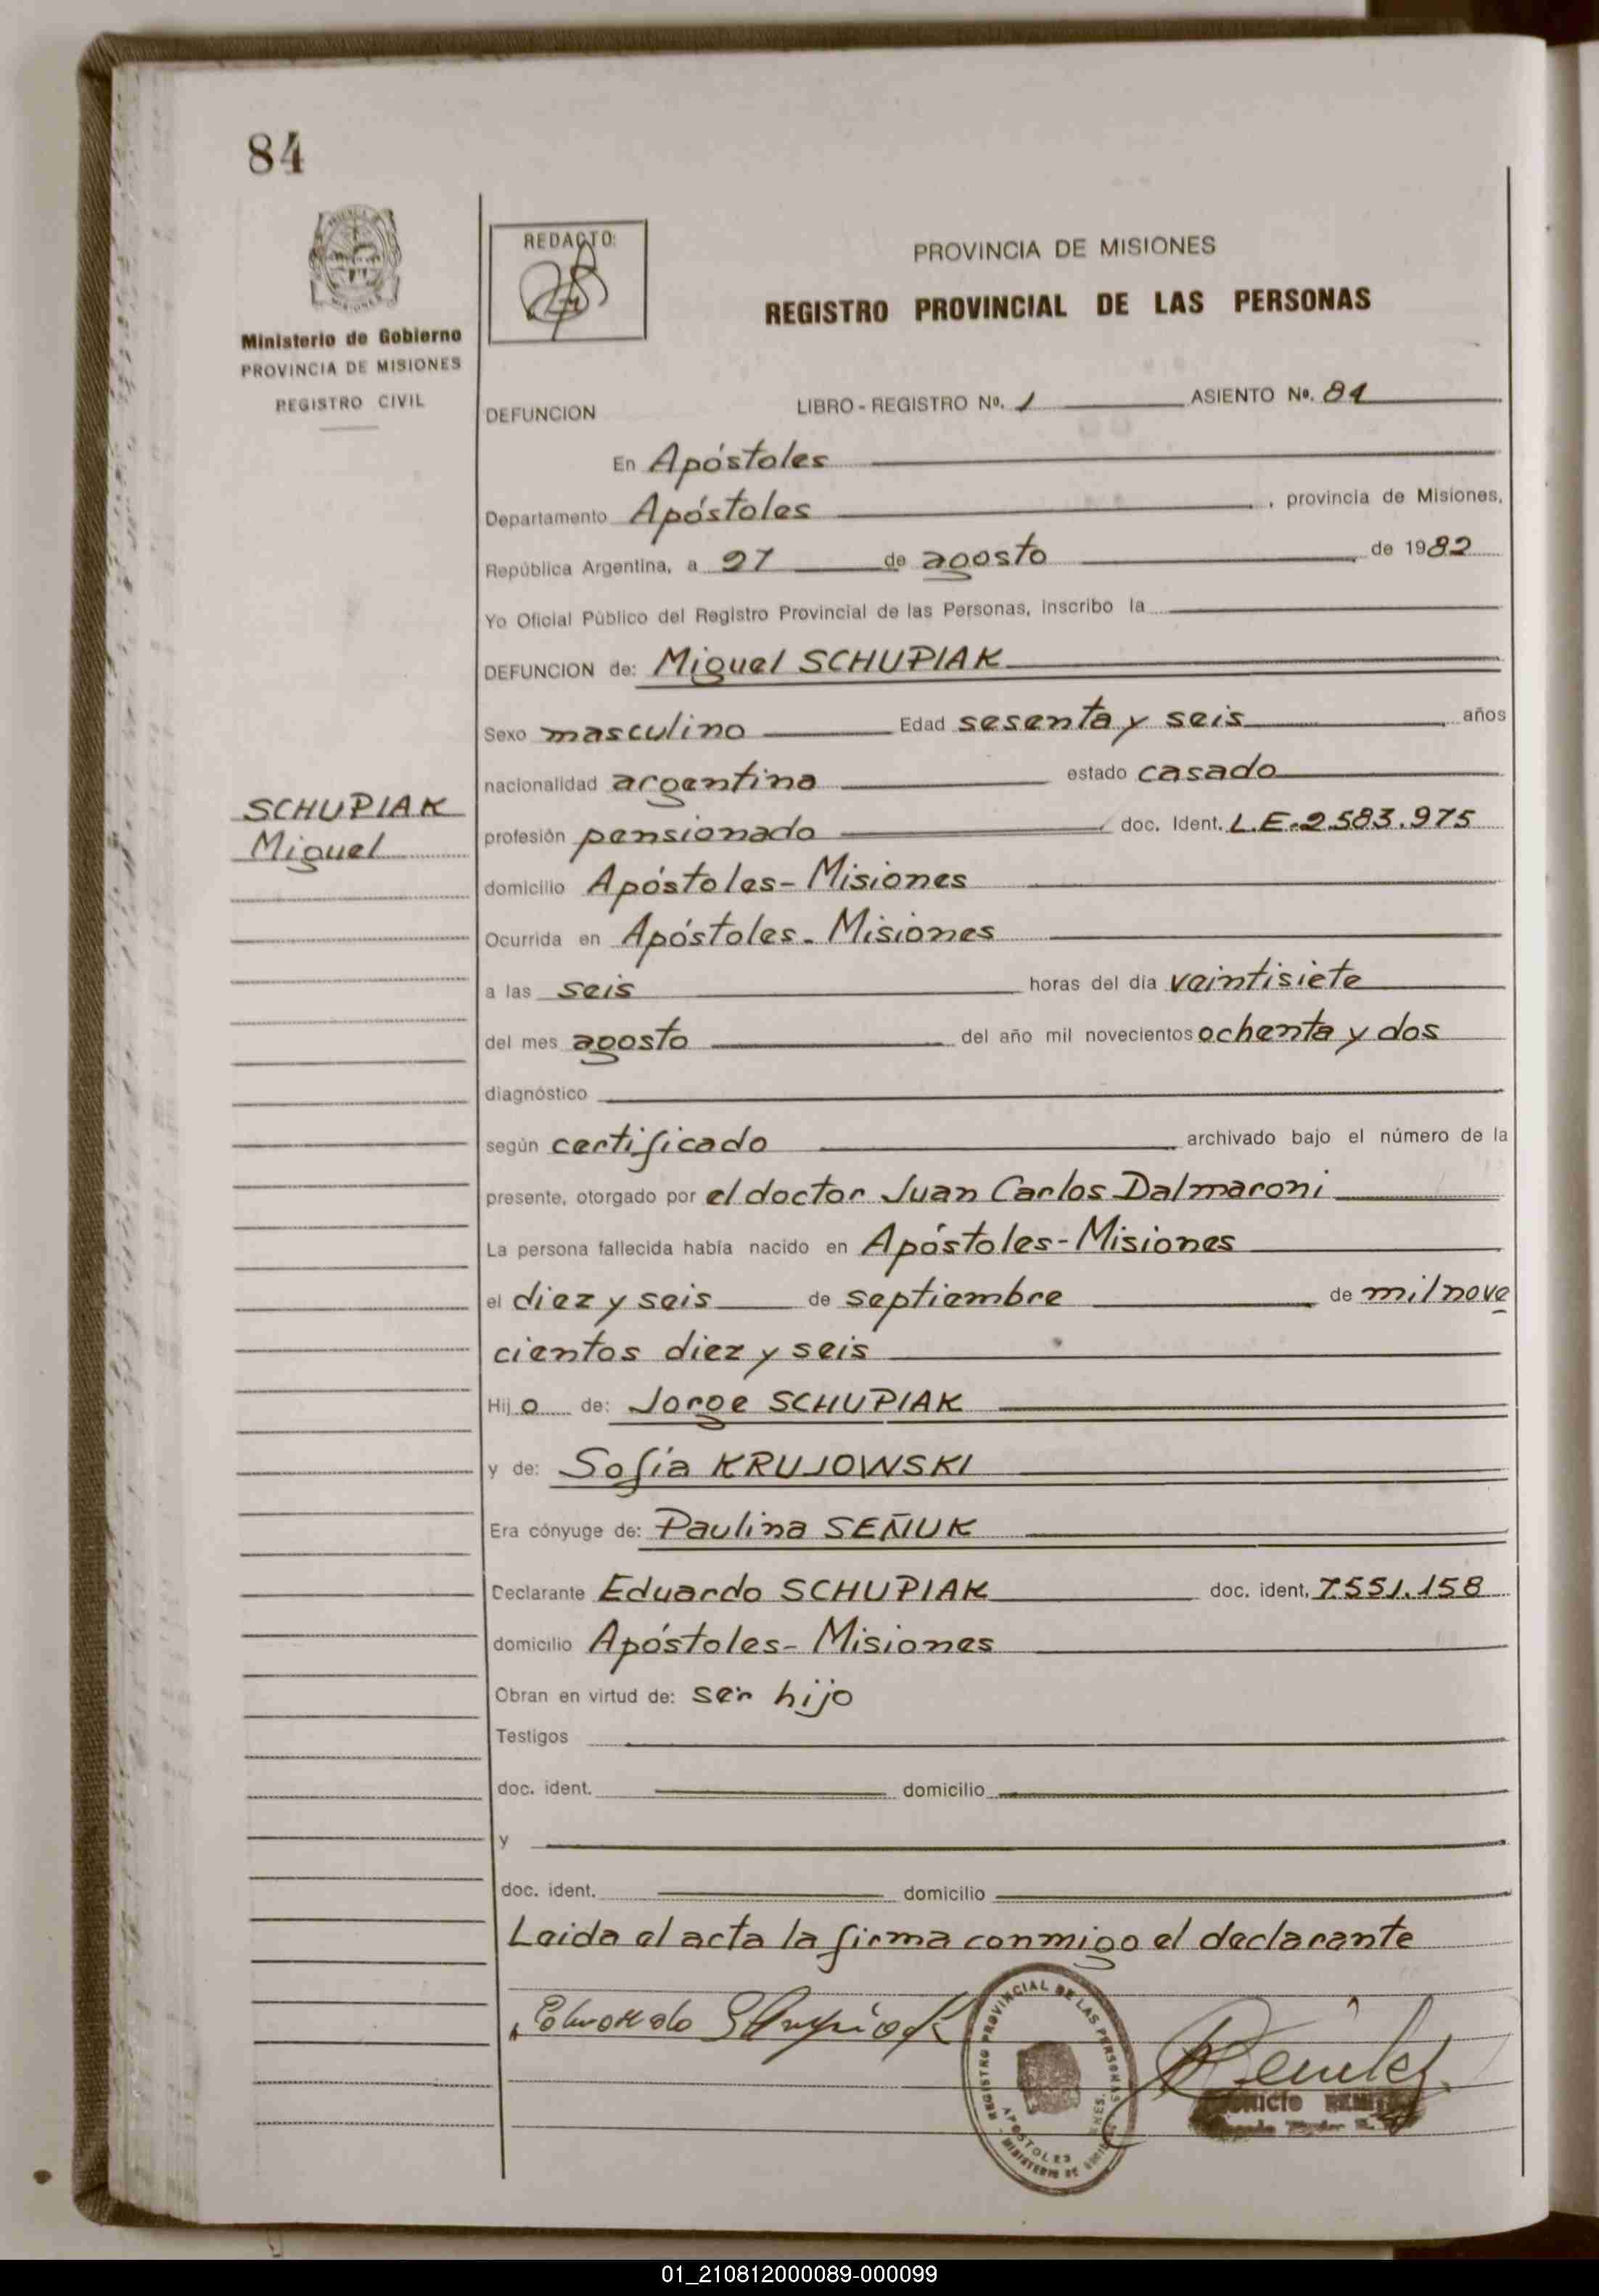 84
REDACTO:
PROVINCIA DE MISIONES
REGISTRO PROVINCIAL DE LAS PERSONAS
Ministerio de Gobierno
PROVINCIA DE MISIONES
REGISTRO CIVIL
DEFUNCION LIBRO - REGISTRO Nº. 1 ASIENTO Nº. 84
En Apóstoles
Departamento Apóstoles, provincia de Misiones,
República Argentina, a 27 de agosto de 1982
Yo Oficial Público del Registro Provincial de las Personas, inscribo la
DEFUNCION de: Miguel SCHUPIAK
Sexo masculino Edad sesenta y seis años
nacionalidad argentina estado casado
SCHUPIAK
Miguel
profesión pensionado doc. Ident. L.E.2.583.975
domicilio Apóstoles-Misiones
Ocurrida en Apóstoles-Misiones
a las seis horas del día veintisiete
del mes agosto del año mil novecientos ochenta y dos
diagnóstico
según certificado archivado bajo el número de la
presente, otorgado por el doctor Juan Carlos Dalmaroni
La persona fallecida había nacido en Apóstoles-Misiones
el diez y seis de septiembre de mil nove
cientos diez y seis
Hijo de: Jorge SCHUPIAK
y de: Sofía KRUJOWSKI
Era cónyuge de: Paulina SEÑIUK
Declarante Eduardo SCHUPIAK doc. ident. 7.551.158
domicilio Apóstoles-Misiones
Obran en virtud de: ser hijo
Testigos
doc. ident. domicilio
y
doc. ident. domicilio
Leida el acta la firma conmigo el declarante
REGISTRO PROVINCIAL DE LAS PERSONAS
APOSTOLES
MINISTERIO DE
01_210812000089-000099